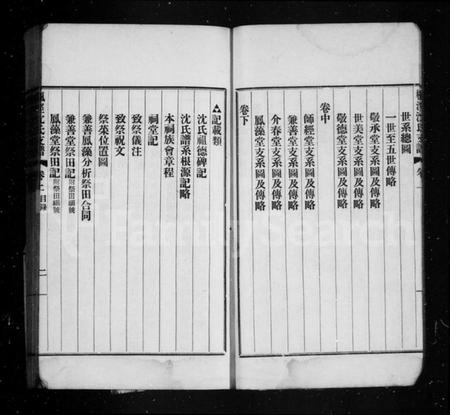 世系總圖
一世至五世傳略
敬承堂支系圖及傳略
世美堂支系圖及傳略
敬德堂支系圖及傳略
卷中
師經堂支系圖及傳略
兼善堂支系圖及傳略
介春堂支系圖及傳略
鳳藻堂支系圖及傳略
卷下
△記載類
沈氏祖德碑記
沈氏譜系根源記略
本祠族會章程
祠堂記
致祭儀注
致祭祝文
祭菜位置圖
兼善鳳藻分析祭田合同
兼善堂祭田記附祭田緬號
鳳藻堂祭田記附祭田緬號
沈氏支譜 卷上 目錄 二